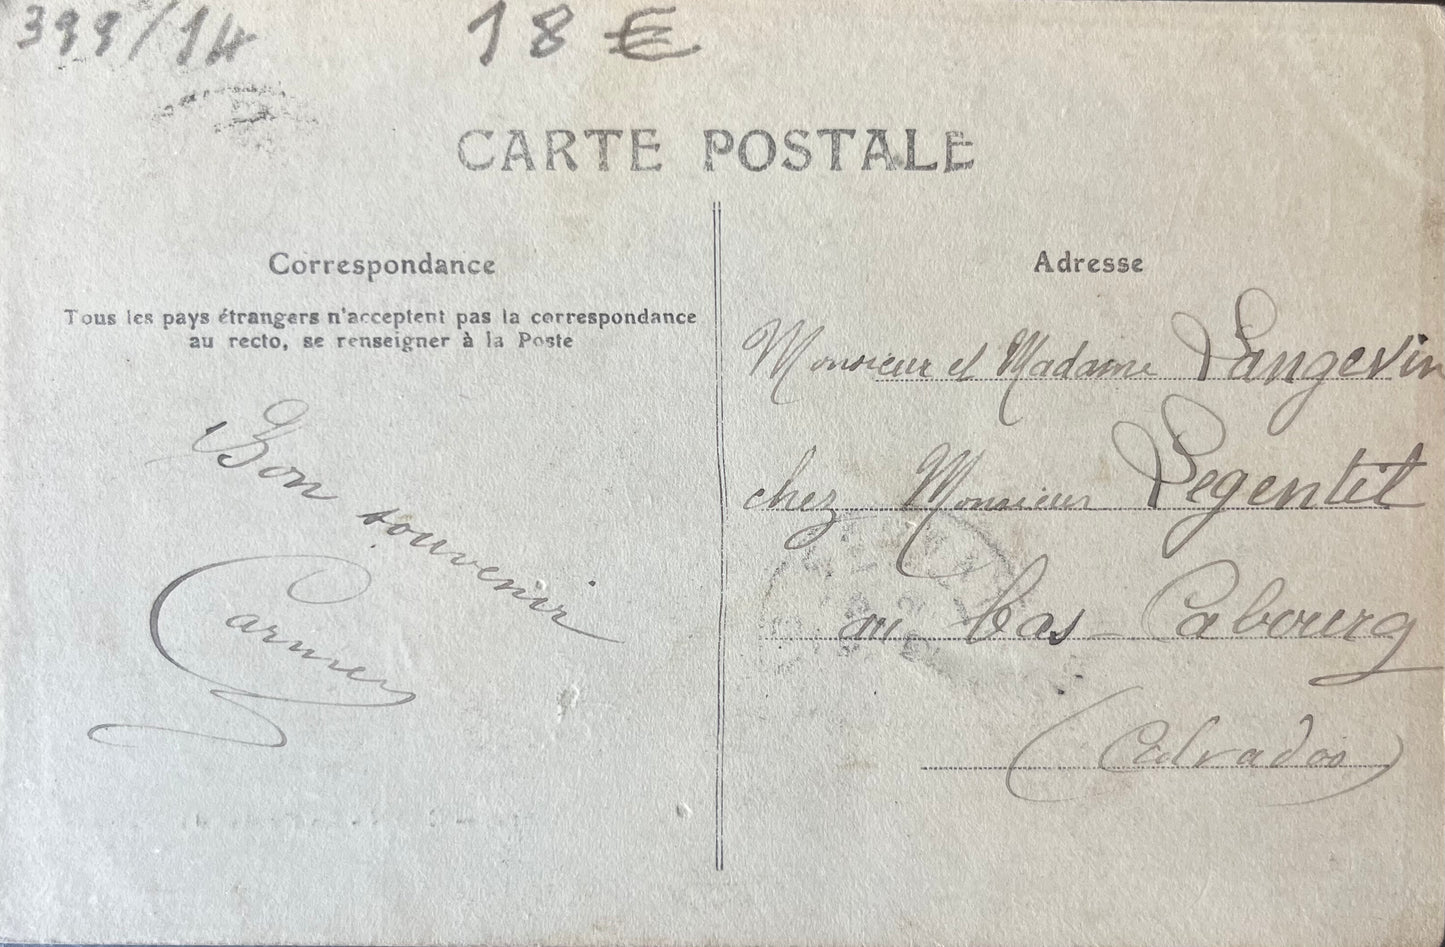 399/14
18 €
CARTE POSTALE
Correspondance
Tous les pays étrangers n'acceptent pas la correspondance
au recto, se renseigner à la Poste
Bon souvenir
Adresse
Monsieur et Madame Langevin
chez Monsieur Legentil
au bas Cabourg
(Calvados)